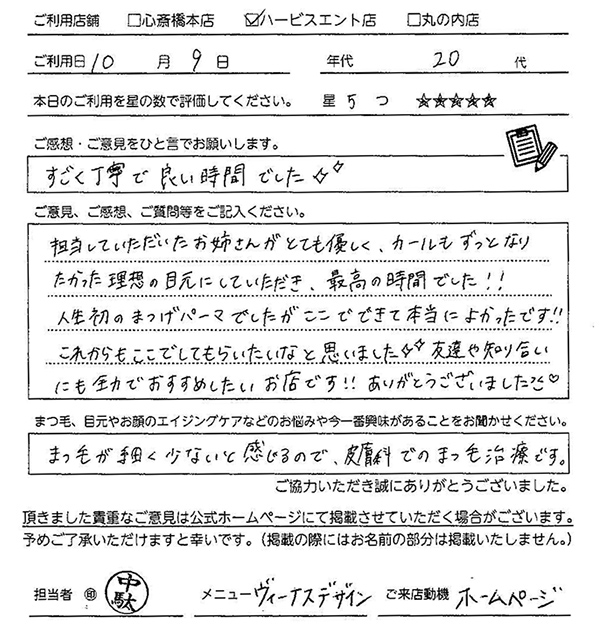 ご利用店舗 □心斎橋本店 ☑ハービスエント店 □丸の内店
ご利用日 10 月 9 日 年代 20 代
本日のご利用を星の数で評価してください。 星 5 つ ☆☆☆☆☆
ご感想・ご意見をひと言でお願いします。
すごく丁寧で良い時間でした✧✧
ご意見、ご感想、ご質問等をご記入ください。
担当していただいたお姉さんがとても優しく、カールもずっとなり
たかった理想の目元にしていただき、最高の時間でした!!
人生初のまつげパーマでしたがここでできて本当によかったです!!
これからもここでしてもらいたいなと思いました✧✧ 友達や知り合い
にも全力でおすすめしたいお店です!! ありがとうございました♡
まつ毛、目元やお顔のエイジングケアなどのお悩みや今一番興味があることをお聞かせください。
まつ毛が細く少ないと感じるので、皮膚科でのまつ毛治療です。
ご協力いただき誠にありがとうございました。
頂きました貴重なご意見は公式ホームページにて掲載させていただく場合がございます。
予めご了承いただけますと幸いです。(掲載の際にはお名前の部分は掲載いたしません。)
担当者 ㊞ 中駄 メニュー ヴィーナスデザイン ご来店動機 ホームページ